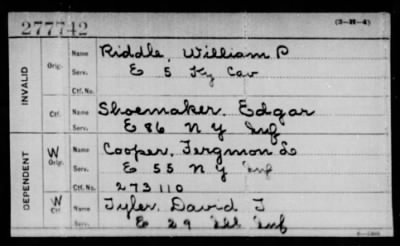 277742
(3-H-4)
INVALID
Orig.
Name Riddle, William P
Serv. E 5 Ky Cav
Ctf. No.
Ctf. Name Shoemaker, Edgar
Serv. E 86 N Y Inf
DEPENDENT
W Orig. Name Cooper, Fergmon L
Serv. E 55 N Y Inf
Ctf. No. 273110
W Ctf. Name Tyler, David T
Serv. E 29 Ill Inf